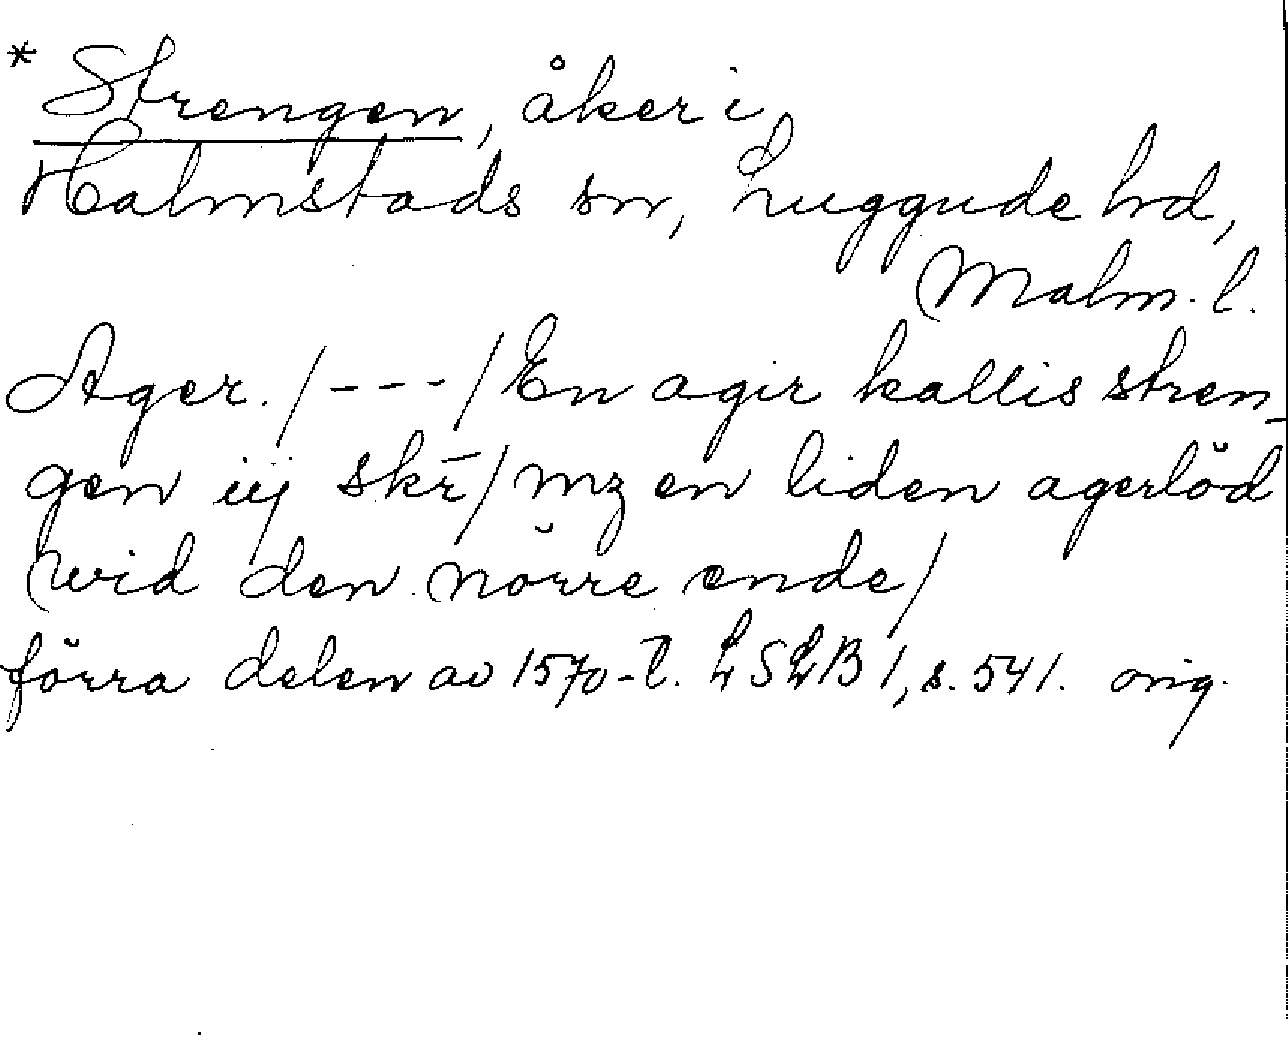 * Strengen, åker i
Halmstads sn, Luggude hd,
Malm. l.
Ager. /---/ En agir kallis stren-
gen iij skr̄/ mz en liden agerlöd
wid den nörre ende/
förra delen av 1570-t. LSLB 1, s. 541. orig.